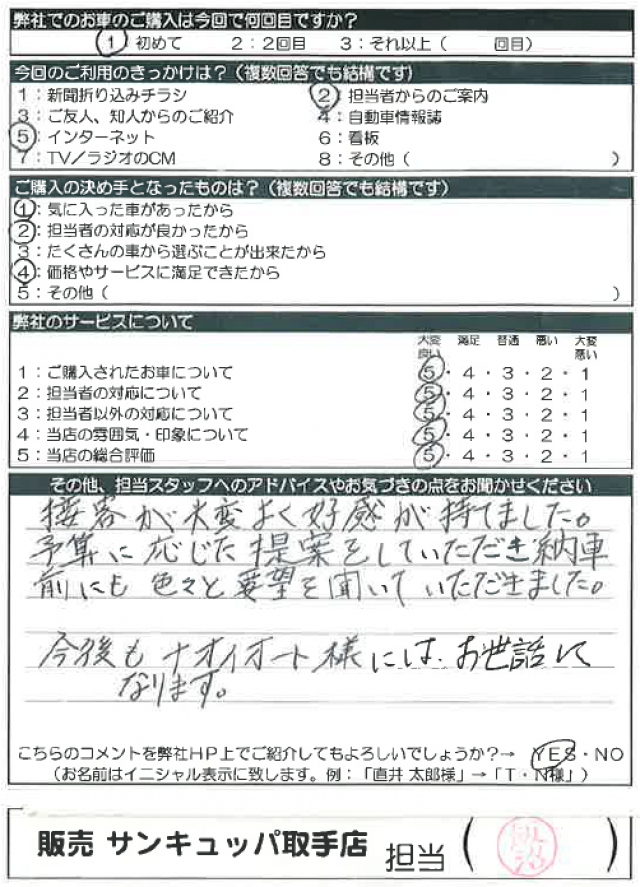 弊社でのお車のご購入は今回で何回目ですか？
1 初めて 2：2回目 3：それ以上（ 回目）
今回のご利用のきっかけは？（複数回答でも結構です）
1：新聞折り込みチラシ 2：担当者からのご案内
3：ご友人、知人からのご紹介 4：自動車情報誌
5：インターネット 6：看板
7：TV／ラジオのCM 8：その他（ ）
ご購入の決め手となったものは？（複数回答でも結構です）
1：気に入った車があったから
2：担当者の対応が良かったから
3：たくさんの車から選ぶことが出来たから
4：価格やサービスに満足できたから
5：その他（ ）
弊社のサービスについて
大変良い 満足 普通 悪い 大変悪い
1：ご購入されたお車について 5・4・3・2・1
2：担当者の対応について 5・4・3・2・1
3：担当者以外の対応について 5・4・3・2・1
4：当店の雰囲気・印象について 5・4・3・2・1
5：当店の総合評価 5・4・3・2・1
その他、担当スタッフへのアドバイスやお気づきの点をお聞かせください
接客が大変よく好感が持てました。
予算に応じた提案をしていただき納車
前にも色々と要望を聞いていただきました。
今後もナオイオート様にはお世話に
なります。
こちらのコメントを弊社HP上でご紹介してもよろしいでしょうか？→ YES・NO
（お名前はイニシャル表示に致します。例：「直井 太郎様」→「T・N様」）
販売 サンキュッパ取手店 担当（ ）